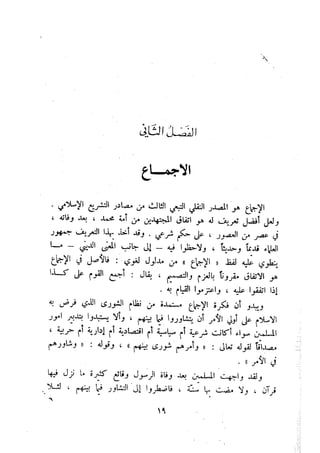 الفصل الثاني
الاجماع
الاجماع هو المصدر النقلي التبعي الثالث من مصادر التشريع الإسلامي .
ولعل أفضل تعريف له هو اتفاق المجتهدين من أمة محمد ، بعد وفاته ،
في عصر من العصور ، على حكم شرعي . وقد أخذ بهذا التعريف جمهور
العلماء قديماً وحديثاً ، ولاحظوا فيه – إلى جانب المعنى الديني – مـا
ينطوي عليه لفظ « الإجماع » من مدلول لغوي : فالأصل في الإجماع
هو الاتفاق مقروناً بالعزم والتصميم ، يقال : أجمع القوم على كـذا
إذا اتفقوا عليه ، واعتزموا القيام به .
ويبدو أن فكرة الإجماع مستمدة من نظام الشورى الذي فرض به
الاسلام على أولي الأمر أن يتشاوروا فيما بينهم ، وألا يستبدوا بتدبير امور
المسلمين سواء أكانت شرعية أم سياسية أم اقتصادية أم إدارية أم حربية ،
مصداقاً لقوله تعالى : « وأمرهم شورى بينهم » ، وقوله : « وشاورهم
في الأمر » .
ولقد واجهت المسلمين بعد وفاة الرسول وقائع كثيرة ما نزل فيها
قرآن ، ولا مضت بها سنّة ، فاضطروا إلى التشاور فيما بينهم ، لئـلا
١٩